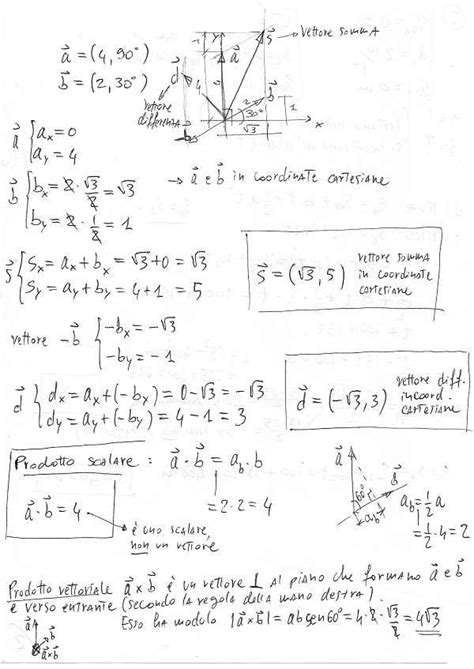 a⃗ = (4, 90°)
b⃗ = (2, 30°)
y
S⃗
→ vettore somma
a⃗
d⃗
4
vettore
differenza
-b⃗
2
b⃗
30°
1
√3
x
a⃗ { ax = 0
ay = 4
b⃗ { bx = 2 · √3/2 = √3
→ a⃗ e b⃗ in coordinate cartesiane
by = 2 · 1/2 = 1
S⃗ { Sx = ax + bx = √3 + 0 = √3
Sy = ay + by = 4 + 1 = 5
S⃗ = (√3, 5) vettore somma
in coordinate
cartesiane
vettore -b⃗ { -bx = -√3
-by = -1
d⃗ { dx = ax + (-bx) = 0 - √3 = -√3
dy = ay + (-by) = 4 - 1 = 3
d⃗ = (-√3, 3) vettore diff.
in coord.
cartesiane
Prodotto scalare : a⃗ · b⃗ = ab · b
= 2 · 2 = 4
a⃗ · b⃗ = 4
è uno scalare
non un vettore
a⃗
60°
b⃗
ab
ab = 1/2 a
= 1/2 · 4 = 2
Prodotto vettoriale a⃗ x b⃗ è un vettore ⊥ al piano che formano a⃗ e b⃗
e verso entrante (secondo la regola della mano destra).
Esso ha modulo |a⃗ x b⃗| = ab sen 60° = 4 · 2 · √3/2 = 4√3
a⃗
b⃗